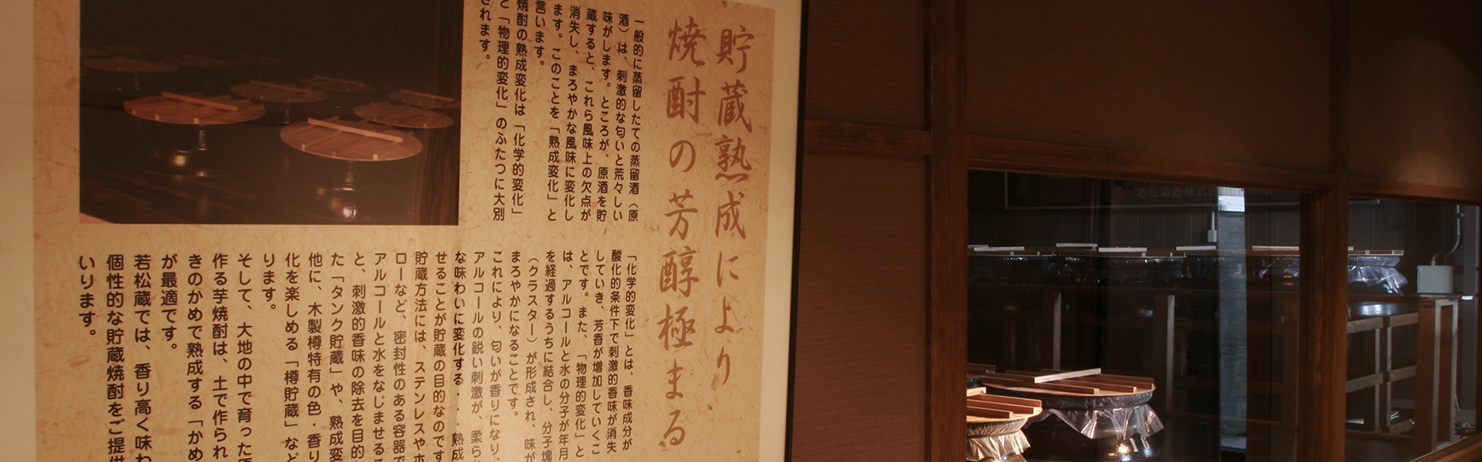 貯蔵熟成により
焼酎の芳醇極まる
一般的に蒸留したての蒸留酒（原
酒）は、刺激的な匂いと荒々しい
味がします。ところが、原酒を貯
蔵すると、これら風味上の欠点が
消失し、まろやかな風味に変化し
ます。このことを「熟成変化」と
言います。
焼酎の熟成変化は「化学的変化」
と「物理的変化」のふたつに大別
されます。
「化学的変化」とは、香味成分が
酸化的条件下で刺激的香味が消失
していき、芳香が増加していくこ
とです。また、「物理的変化」と
は、アルコールと水の分子が年月
を経過するうちに結合し、分子塊
（クラスター）が形成され、味が
まろやかになることです。
これにより、匂いが香りになり、
アルコールの鋭い刺激が、柔ら
な味わいに変化する・・熟成
せることが貯蔵の目的なのです
貯蔵方法には、ステンレスやホ
ローなど、密封性のある容器で
アルコールと水をなじませる
と、刺激的香味の除去を目的
た「タンク貯蔵」や、熟成変
他に、木製樽特有の色・香り
化を楽しめる「樽貯蔵」など
ります。
そして、大地の中で育った
作る芋焼酎は、土で作られ
きのかめで熟成する「かめ
が最適です。
若松蔵では、香り高く味わ
個性的な貯蔵焼酎をご提供
いります。
若松酒造株式会社